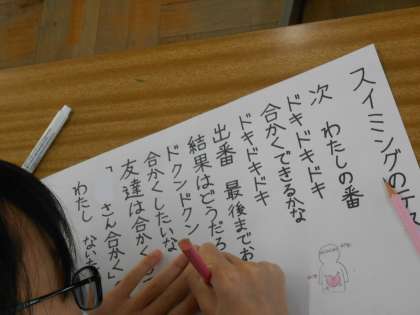 スイミングの
次 わたしの番
ドキドキドキ
合かくできるかな
ドキドキドキ
出番 最後までお
結果はどうだろ
ドクンドクン
合かくしたいな
友達は合かく
「 さん合かく
わたし ない